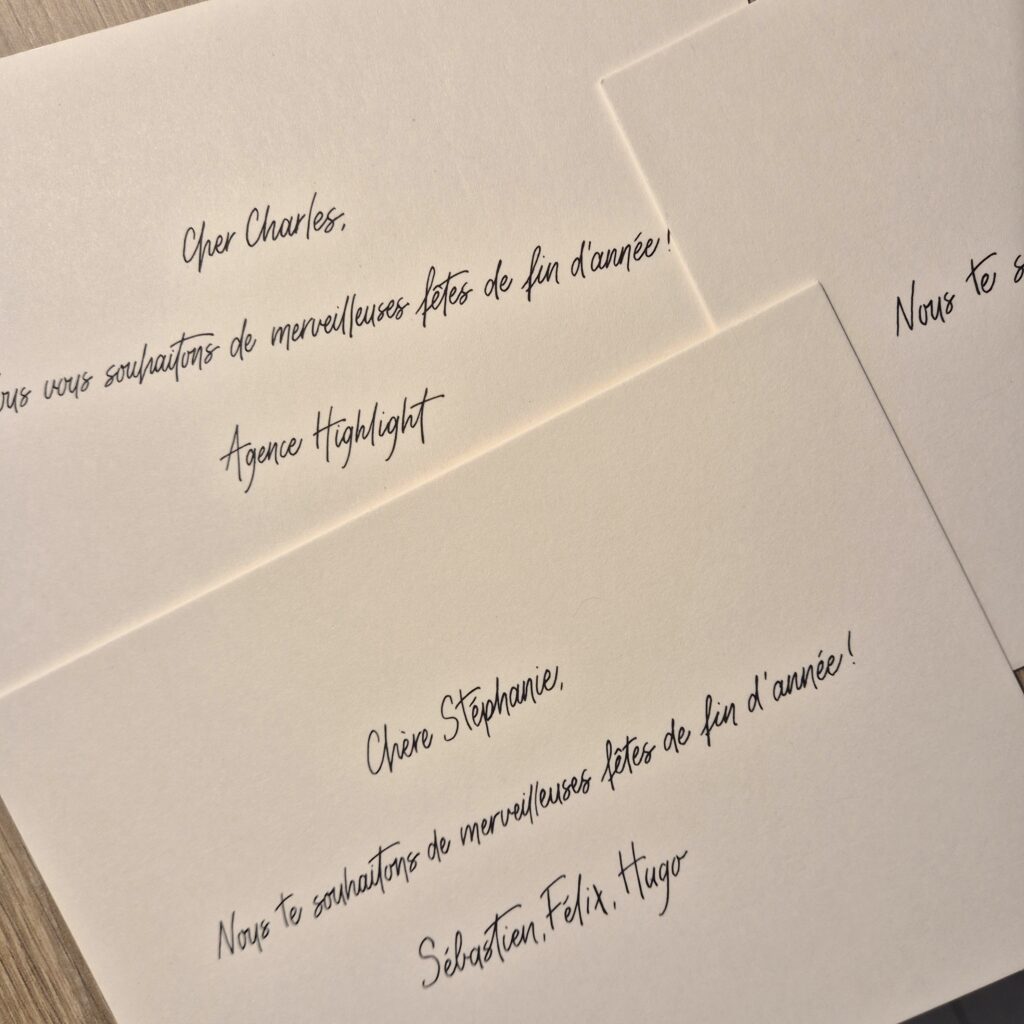 Cher Charles,
vous souhaitons de merveilleuses fêtes de fin d'année !
Agence Highlight
Nous te
Chère Stéphanie,
Nous te souhaitons de merveilleuses fêtes de fin d'année !
Sébastien, Félix, Hugo